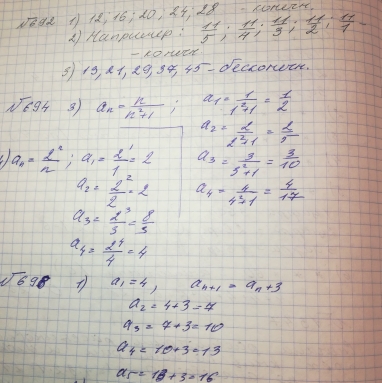 №692 1) 12, 16, 20, 24, 28 - конечн.
2) Например: 11/5; 11/4; 11/3; 11/2; 11/1 -
- конечн
3) 13, 21, 29, 37, 45 - бесконечн.
№694 3) aₙ = n/n²+1 ; a₁ = 1/1²+1 = 1/2
a₂ = 2/2²+1 = 2/5
a₃ = 3/3²+1 = 3/10
a₄ = 4/4²+1 = 4/17
4) aₙ = 2ⁿ/n ; a₁ = 2¹/1 = 2
a₂ = 2²/2 = 2
a₃ = 2³/3 = 8/3
a₄ = 2⁴/4 = 4
1) a₁ = 4, aₙ₊₁ = aₙ + 3
a₂ = 4+3 = 7
a₃ = 7+3 = 10
a₄ = 10+3 = 13
a₅ = 13+3 = 16